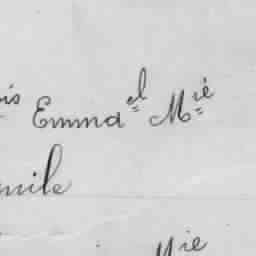 is Emma^el M^ie
mile
Mie